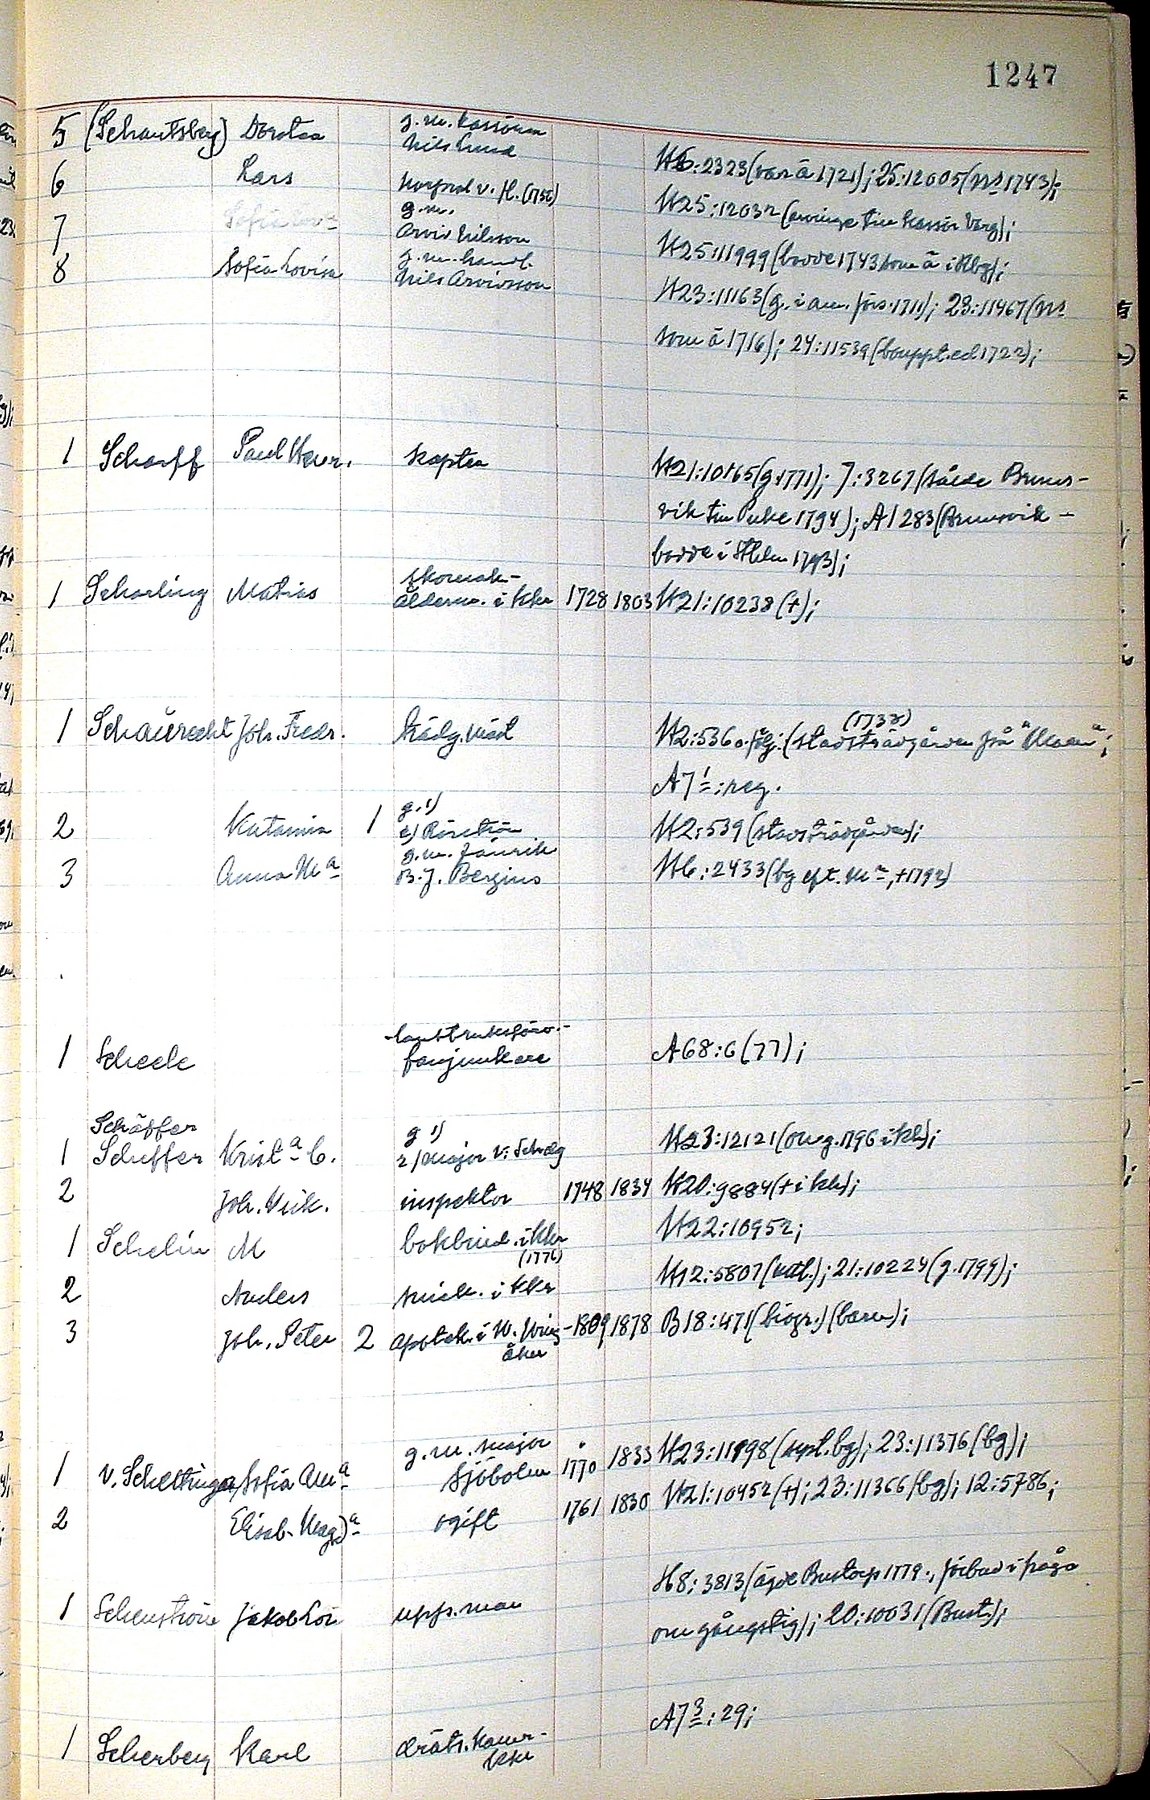 1247
5 (Schantsberg) Dorotea g.m. kassören Nils Lund H6:2323(var ä 1721); 25:12005(ms 1743);
6 Lars korpral v. H.(1756) H25:12032(arvinge till kassör Varg);
7 Sofia Lova g.m. Arvid Nilsson H25:11999(bodde 1743 som ä i Kbg);
8 Sofia Lovisa g.m. handl. Nils Arvidsson H23:11163(g. i am. förs. 1711); 23:11467(ms
som ä 1716); 24:11539(bouppt.ed 1722);
1 Scharff Paul Henr. kapten H21:10165(g.1771); 7:3267(sålde Bruns-
vik till Puke 1794); A1 283(Brunsvik -
bodde i Sthlm 1793);
1 Scharling Matias skomak-
ålderm. i Kkr 1728 1803 H21:10238(+);
1 Schaurecht Joh. Fredr. trädg.mäst H2:536 o.följ.(stadsträdgården på "Maen"; (1732)
A7¹:reg.
2 Katarina 1 g. 1)
2) Ranström H2:539(stadsträdgården);
3 Anna Mª g.m. fänrik
B.J. Bergius H6:2433(bg eft. mª, +1792)
1 Scheele lantbruksförv.-
fanjunkare A68:6(77);
Schäffer
1 Scheffer Kristª C. g 1)
2) major v: Schælg H23:12121(omg.1796 i kkr);
2 Joh. Henk. inspektor 1748 1834 H20:9884(+ i kkr);
1 Schelin M bokbind. i Kkr (1776) H22:10952;
2 Anders snick. i Kkr H12:5807(utl.); 21:10224(g.1799);
3 Joh. Peter 2 apotek. i W. Wing-
åker 1809 1878 B18:471(biogr.)(barn);
1 v. Scheltinga Sofia Amª g.m. major
Sjöholm 1770 1833 H23:11998(uppl.bg); 23:11376(bg);
2 Elisab. Magdª ogift 1761 1830 H21:10452(+); 23:11366(bg); 12:5786;
1 Schenström Jakob Lor. upps.man H8:3813(ägde Bustorp 1779., förbud i fråga
om gångstig); 20:10031(Bust.);
1 Scherberg Karl dräts.kamr-
Kkr A7³:29;